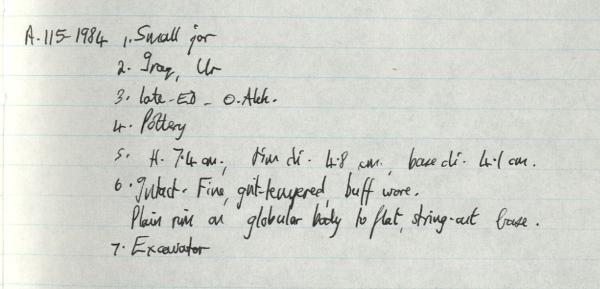 A.115-1984 1. Small jar
2. Iraq, Ur
3. late-ED - O.Akk.
4. Pottery
5. H. 7.4 cm, rim di. 4.8 cm, base di. 4.1 cm.
6. Intact. Fine, grit-tempered, buff ware.
Plain rim on globular body to flat, string-cut base.
7. Excavator